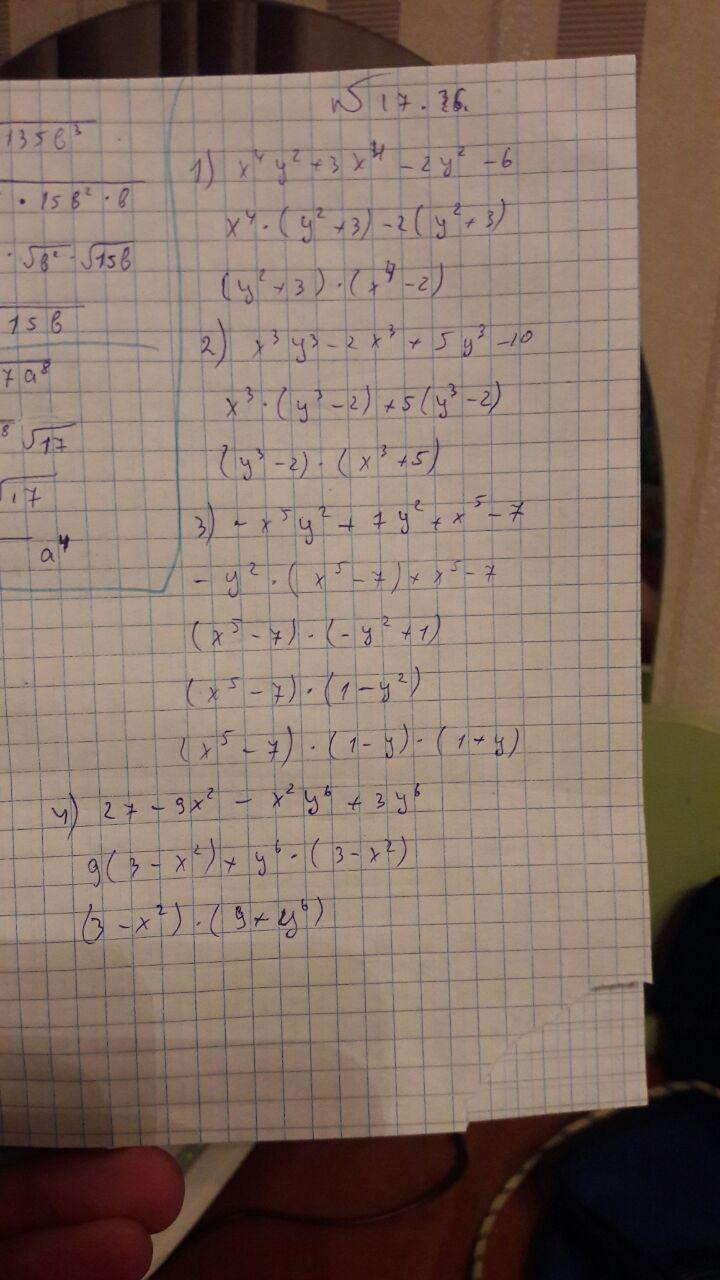 √135b³
· 15b² · b
· √b² · √15b
15b
7a⁸
⁸ √17
√17
a⁴
№ 17.36.
1) x⁴y² + 3x⁴ - 2y² - 6
x⁴ · (y² + 3) - 2(y² + 3)
(y² + 3) · (x⁴ - 2)
2) x³y³ - 2x³ + 5y³ - 10
x³ · (y³ - 2) + 5(y³ - 2)
(y³ - 2) · (x³ + 5)
3) - x⁵y² + 7y² + x⁵ - 7
- y² · (x⁵ - 7) + x⁵ - 7
(x⁵ - 7) · (-y² + 1)
(x⁵ - 7) · (1 - y²)
(x⁵ - 7) · (1 - y) · (1 + y)
4) 27 - 9x² - x²y⁶ + 3y⁶
9(3 - x²) + y⁶ · (3 - x²)
(3 - x²) · (9 + y⁶)